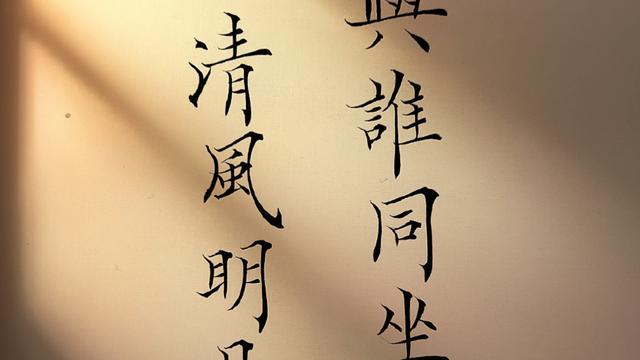 與誰同坐
清風明月